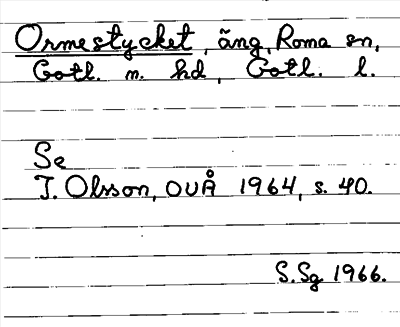 Ormestycket, äng, Roma sn,
Gotl. n. hd, Gotl. l.
Se
I. Olsson, OUÅ 1964, s. 40.
S.Sg 1966.